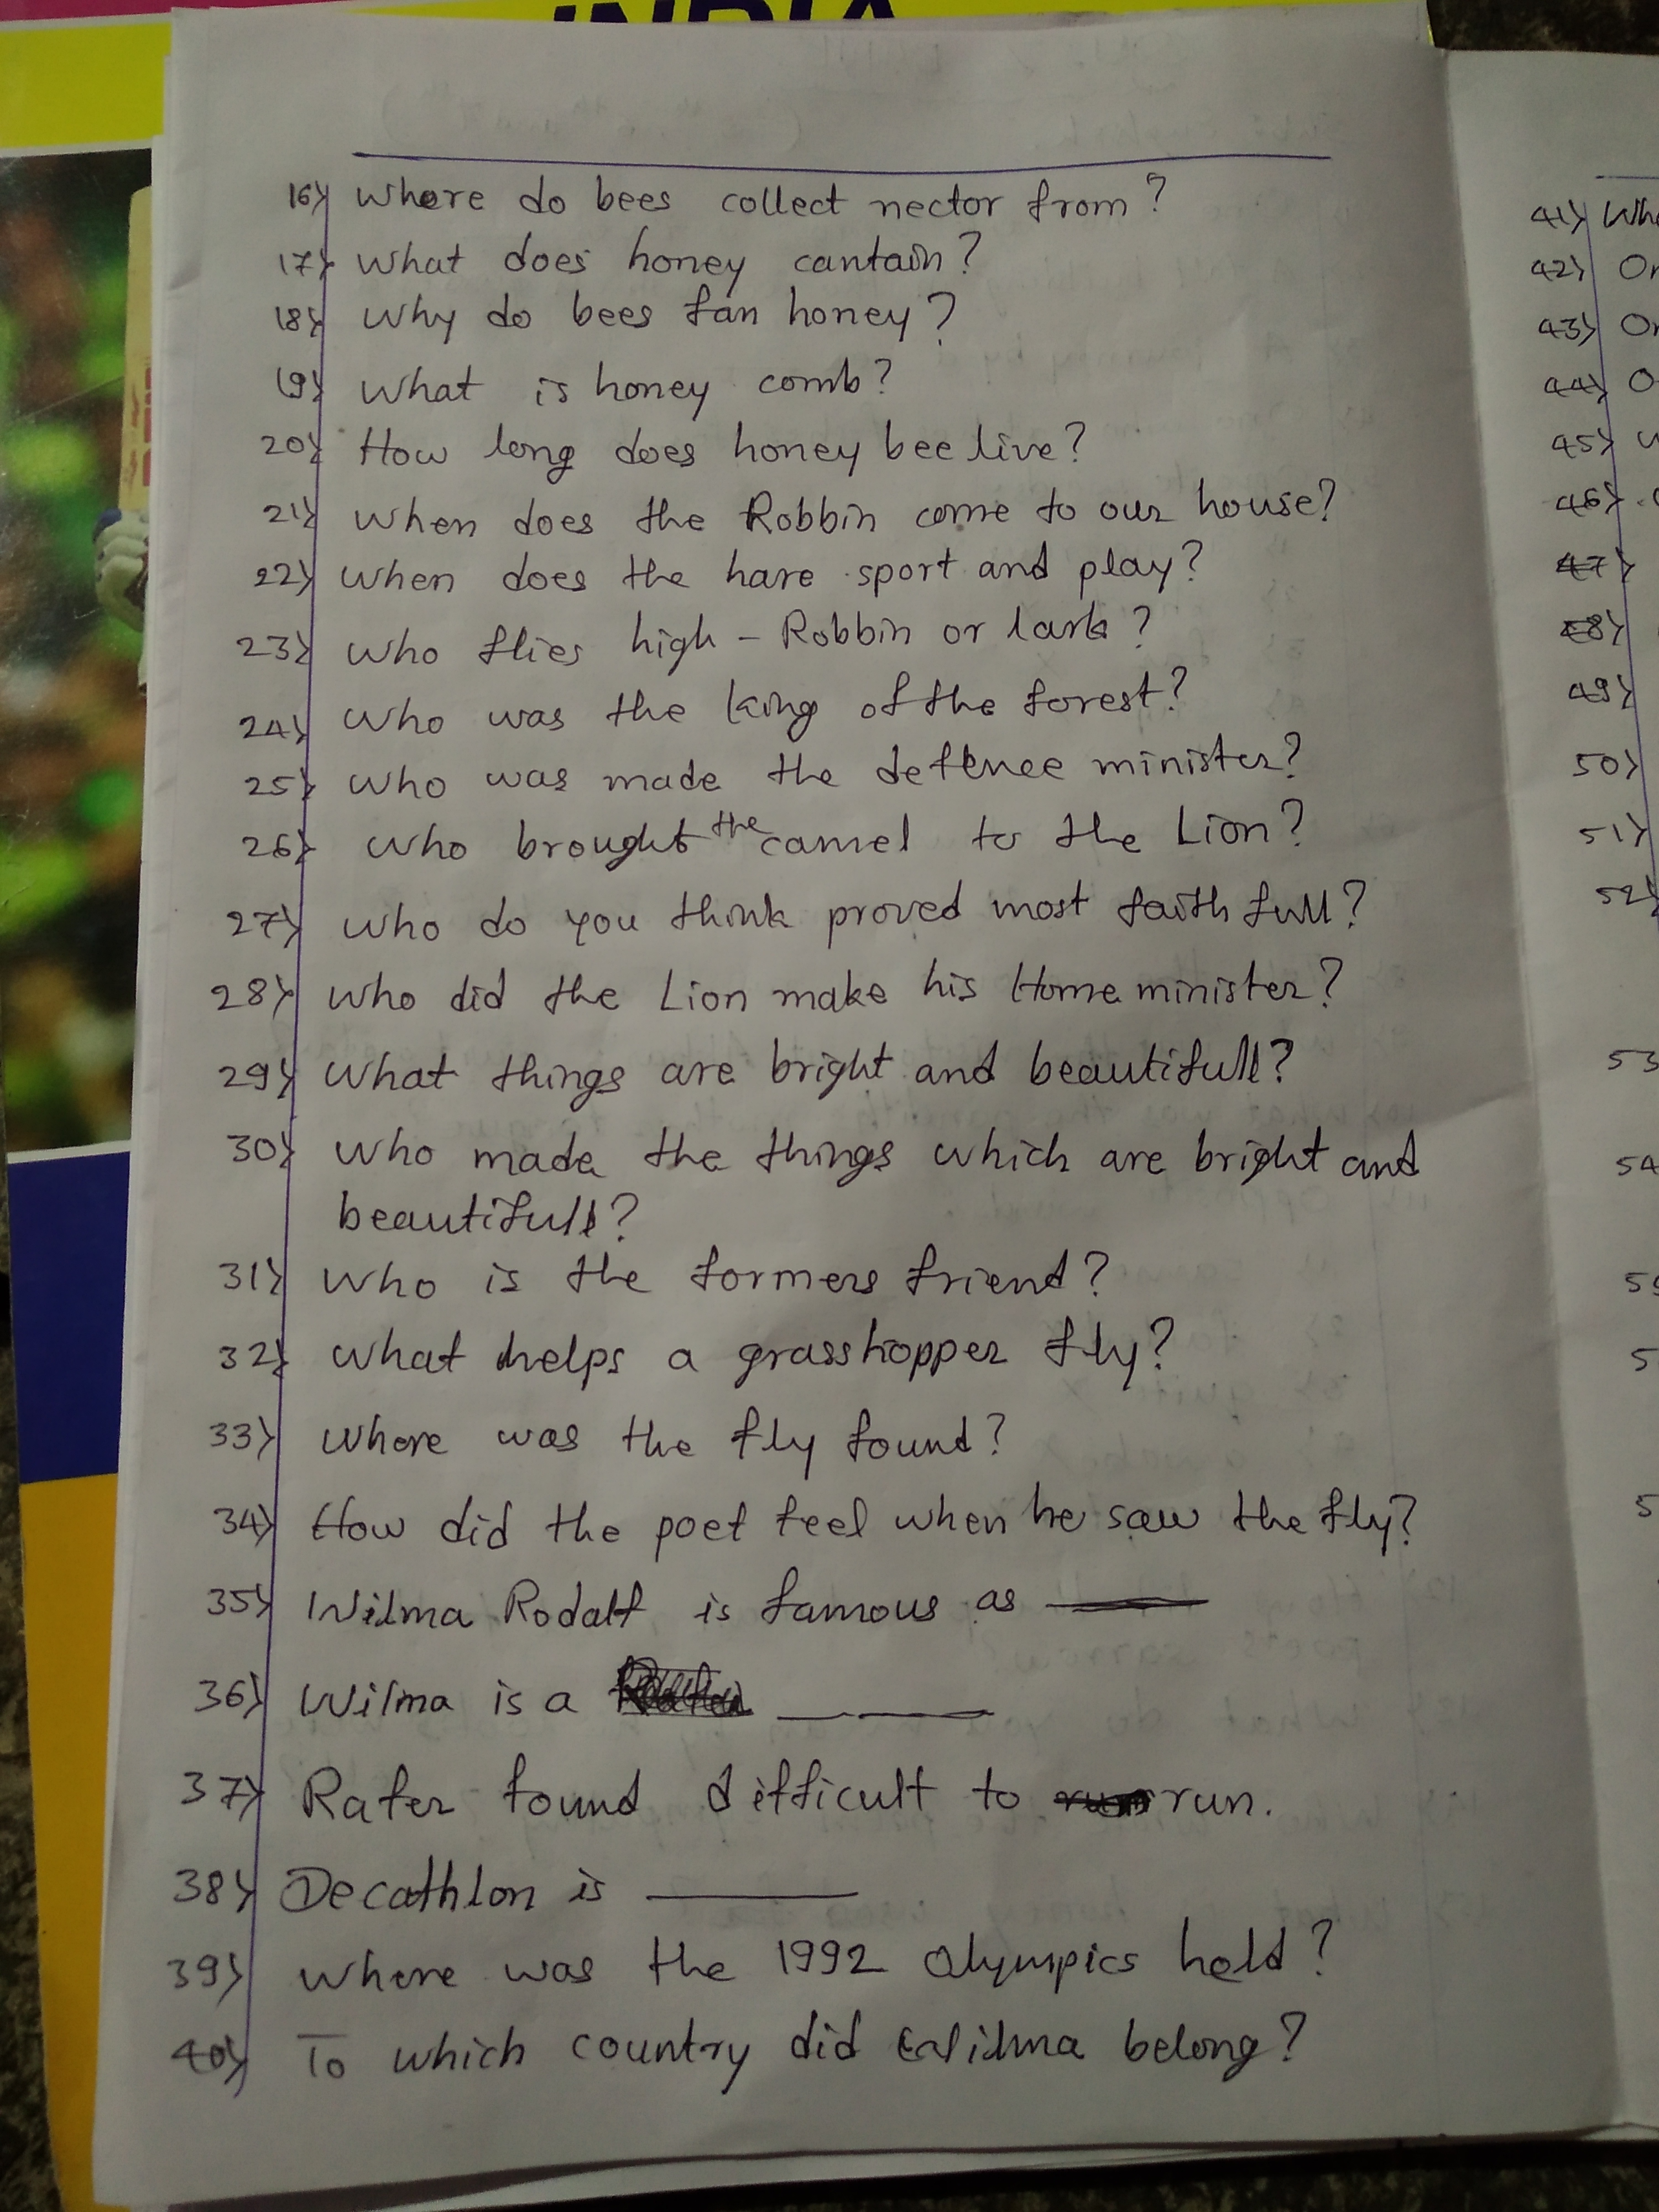 INDIA
16) Where do bees collect nector from?
17) What does honey cantain?
18) Why do bees fan honey?
19) What is honey comb?
20) How long does honey bee live?
21) When does the Robbin come to our house?
22) When does the hare sport and play?
23) Who flies high - Robbin or lark?
24) Who was the king of the forest?
25) Who was made the defence minister?
26) Who brought the camel to the Lion?
27) Who do you think proved most faith full?
28) Who did the Lion make his Home minister?
29) What things are bright and beautifull?
30) Who made the things which are bright and
beautifull?
31) Who is the formers friend?
32) What helps a grasshopper fly?
33) Where was the fly found?
34) How did the poet feel when he saw the fly?
35) Wilma Rodalf is famous as ____
36) Wilma is a ____
37) Rafer found difficult to run.
38) Decathlon is ____
39) Where was the 1992 Olympics held?
40) To which country did Wilma belong?
41) Wh
42) On
43) On
44) O
45)
46)
47)
48)
49)
50)
51)
52)
53
54
5
5
5